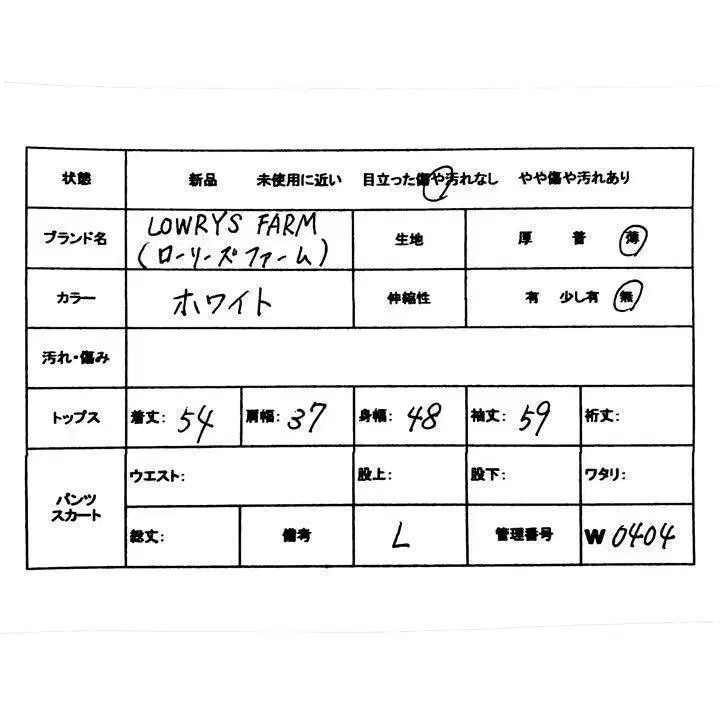 状態 新品 未使用に近い 目立った傷や汚れなし やや傷や汚れあり
ブランド名 LOWRYS FARM
(ローリーズファーム) 生地 厚 普 薄
カラー ホワイト 伸縮性 有 少し有 無
汚れ・傷み
トップス 着丈: 54 肩幅: 37 身幅: 48 袖丈: 59 裄丈:
パンツ
スカート
ウエスト: 股上: 股下: ワタリ:
総丈: 備考 L 管理番号 W 0404